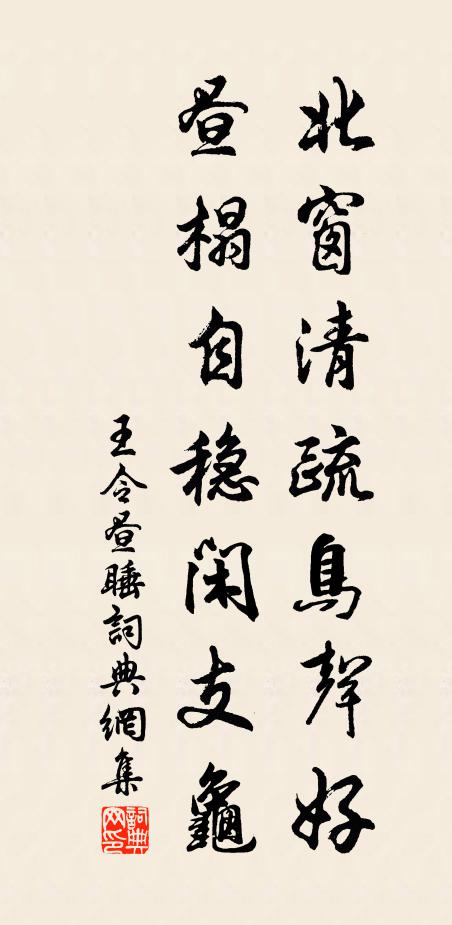 北窗清疏鳥聲好
晝榻自穩閑支龜
王令晝睡詞典網集
詞典網印